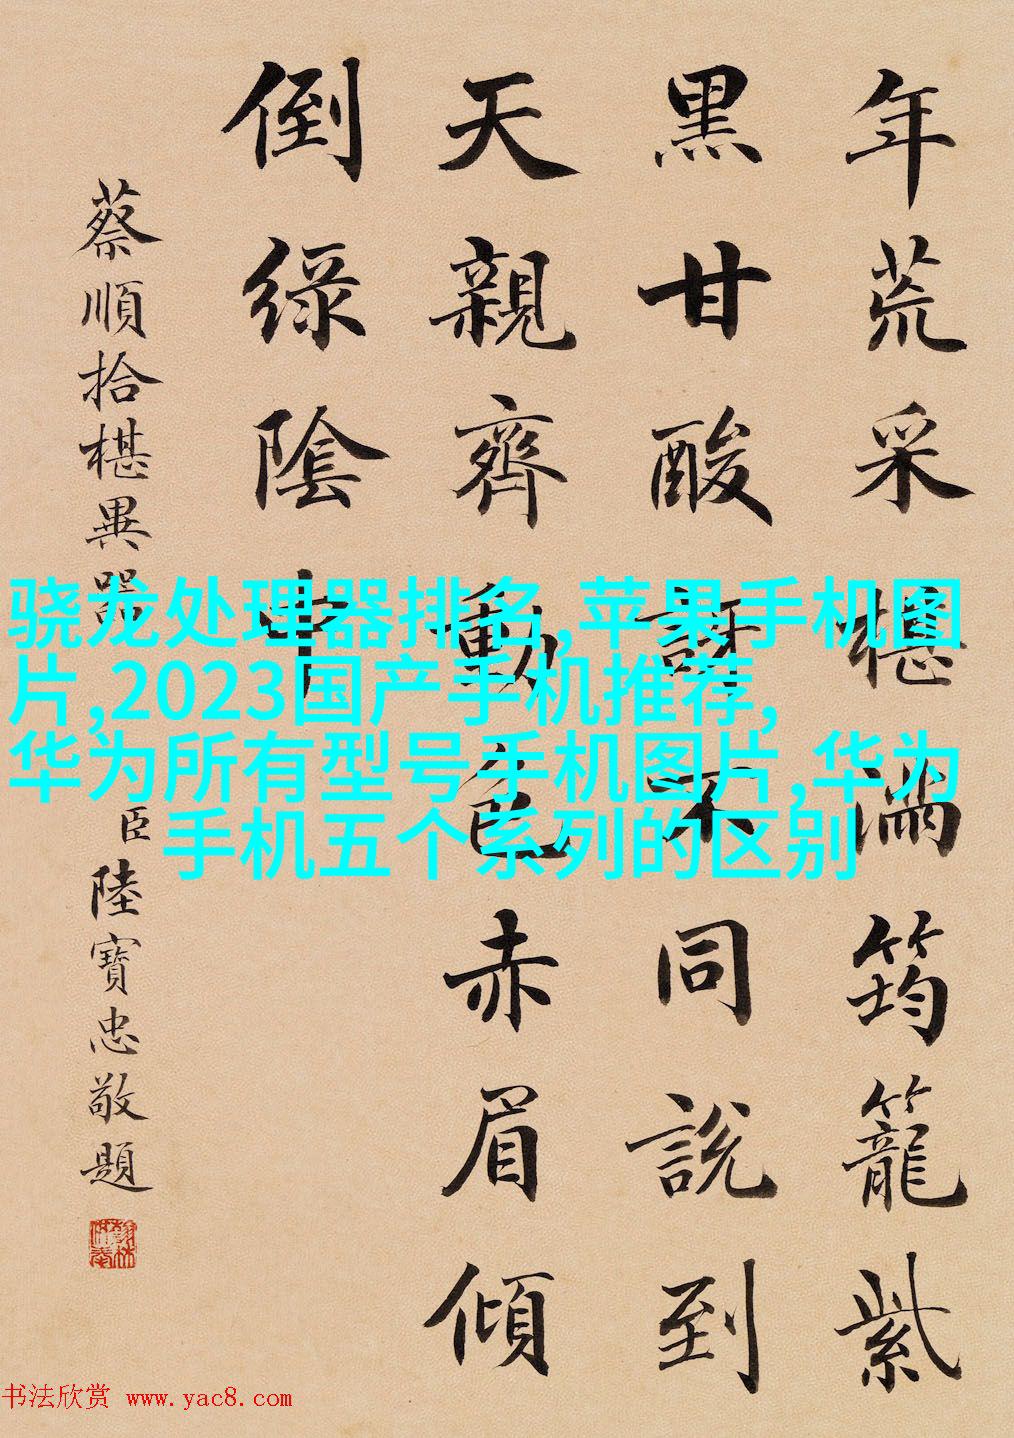 年荒采椹滿筠籠紫
黑甘酸訝不同說到
天親齊動色赤眉傾
倒綠陰中
蔡順拾椹異器
臣陸寶忠敬題
骁龙处理器排名,苹果手机图
片,2023国产手机推荐,
华为所有型号手机图片,华为
手机五个系列的区别
书法欣赏 www.yac8.com